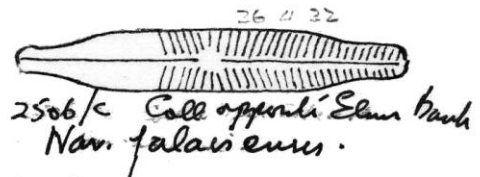 36 11 32
2506/c Coll opposite Elms bank
Nav. falaisensis.